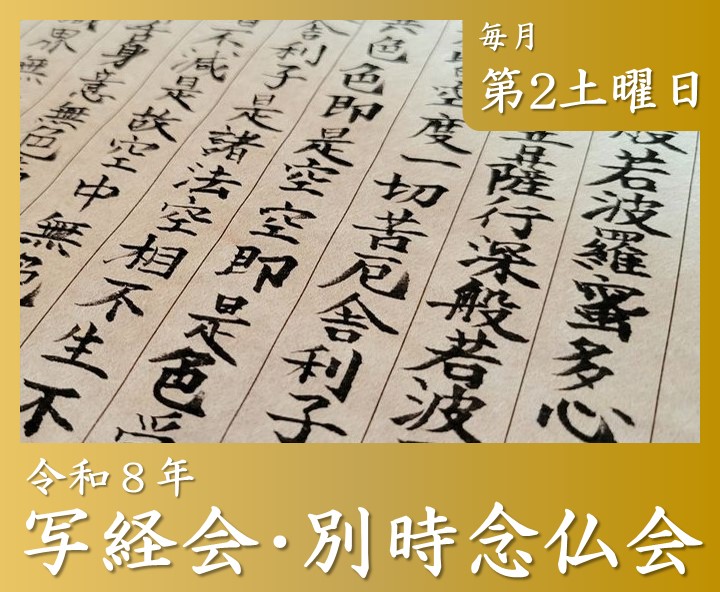 毎月
第2土曜日
般若波羅蜜多心
菩薩行深般若波
皆空度一切苦厄舎利子
色色即是空空即是色受
舎利子是諸法空相不生不
不減是故空中無色
舌身意無色
界無
令和８年
写経会・別時念仏会